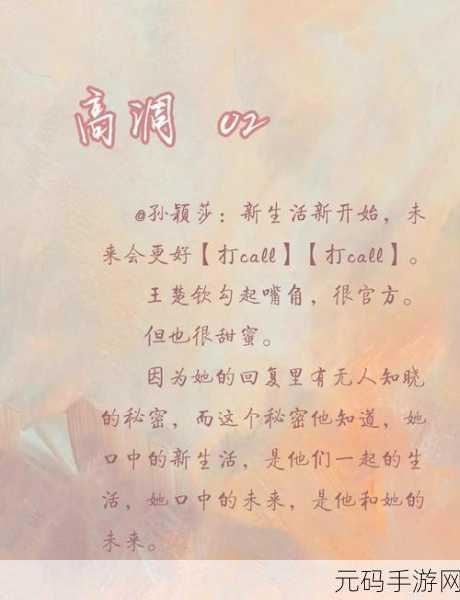 高凋 02
@孙颖莎：新生活新开始，未
来会更好【打call】【打call】。
王楚钦勾起嘴角，很官方。
但也很甜蜜。
因为她的回复里有无人知晓
的秘密，而这个秘密他知道，她
口中的新生活，是他们一起的生
活，她口中的未来，是他和她的
未来。
元码手游网